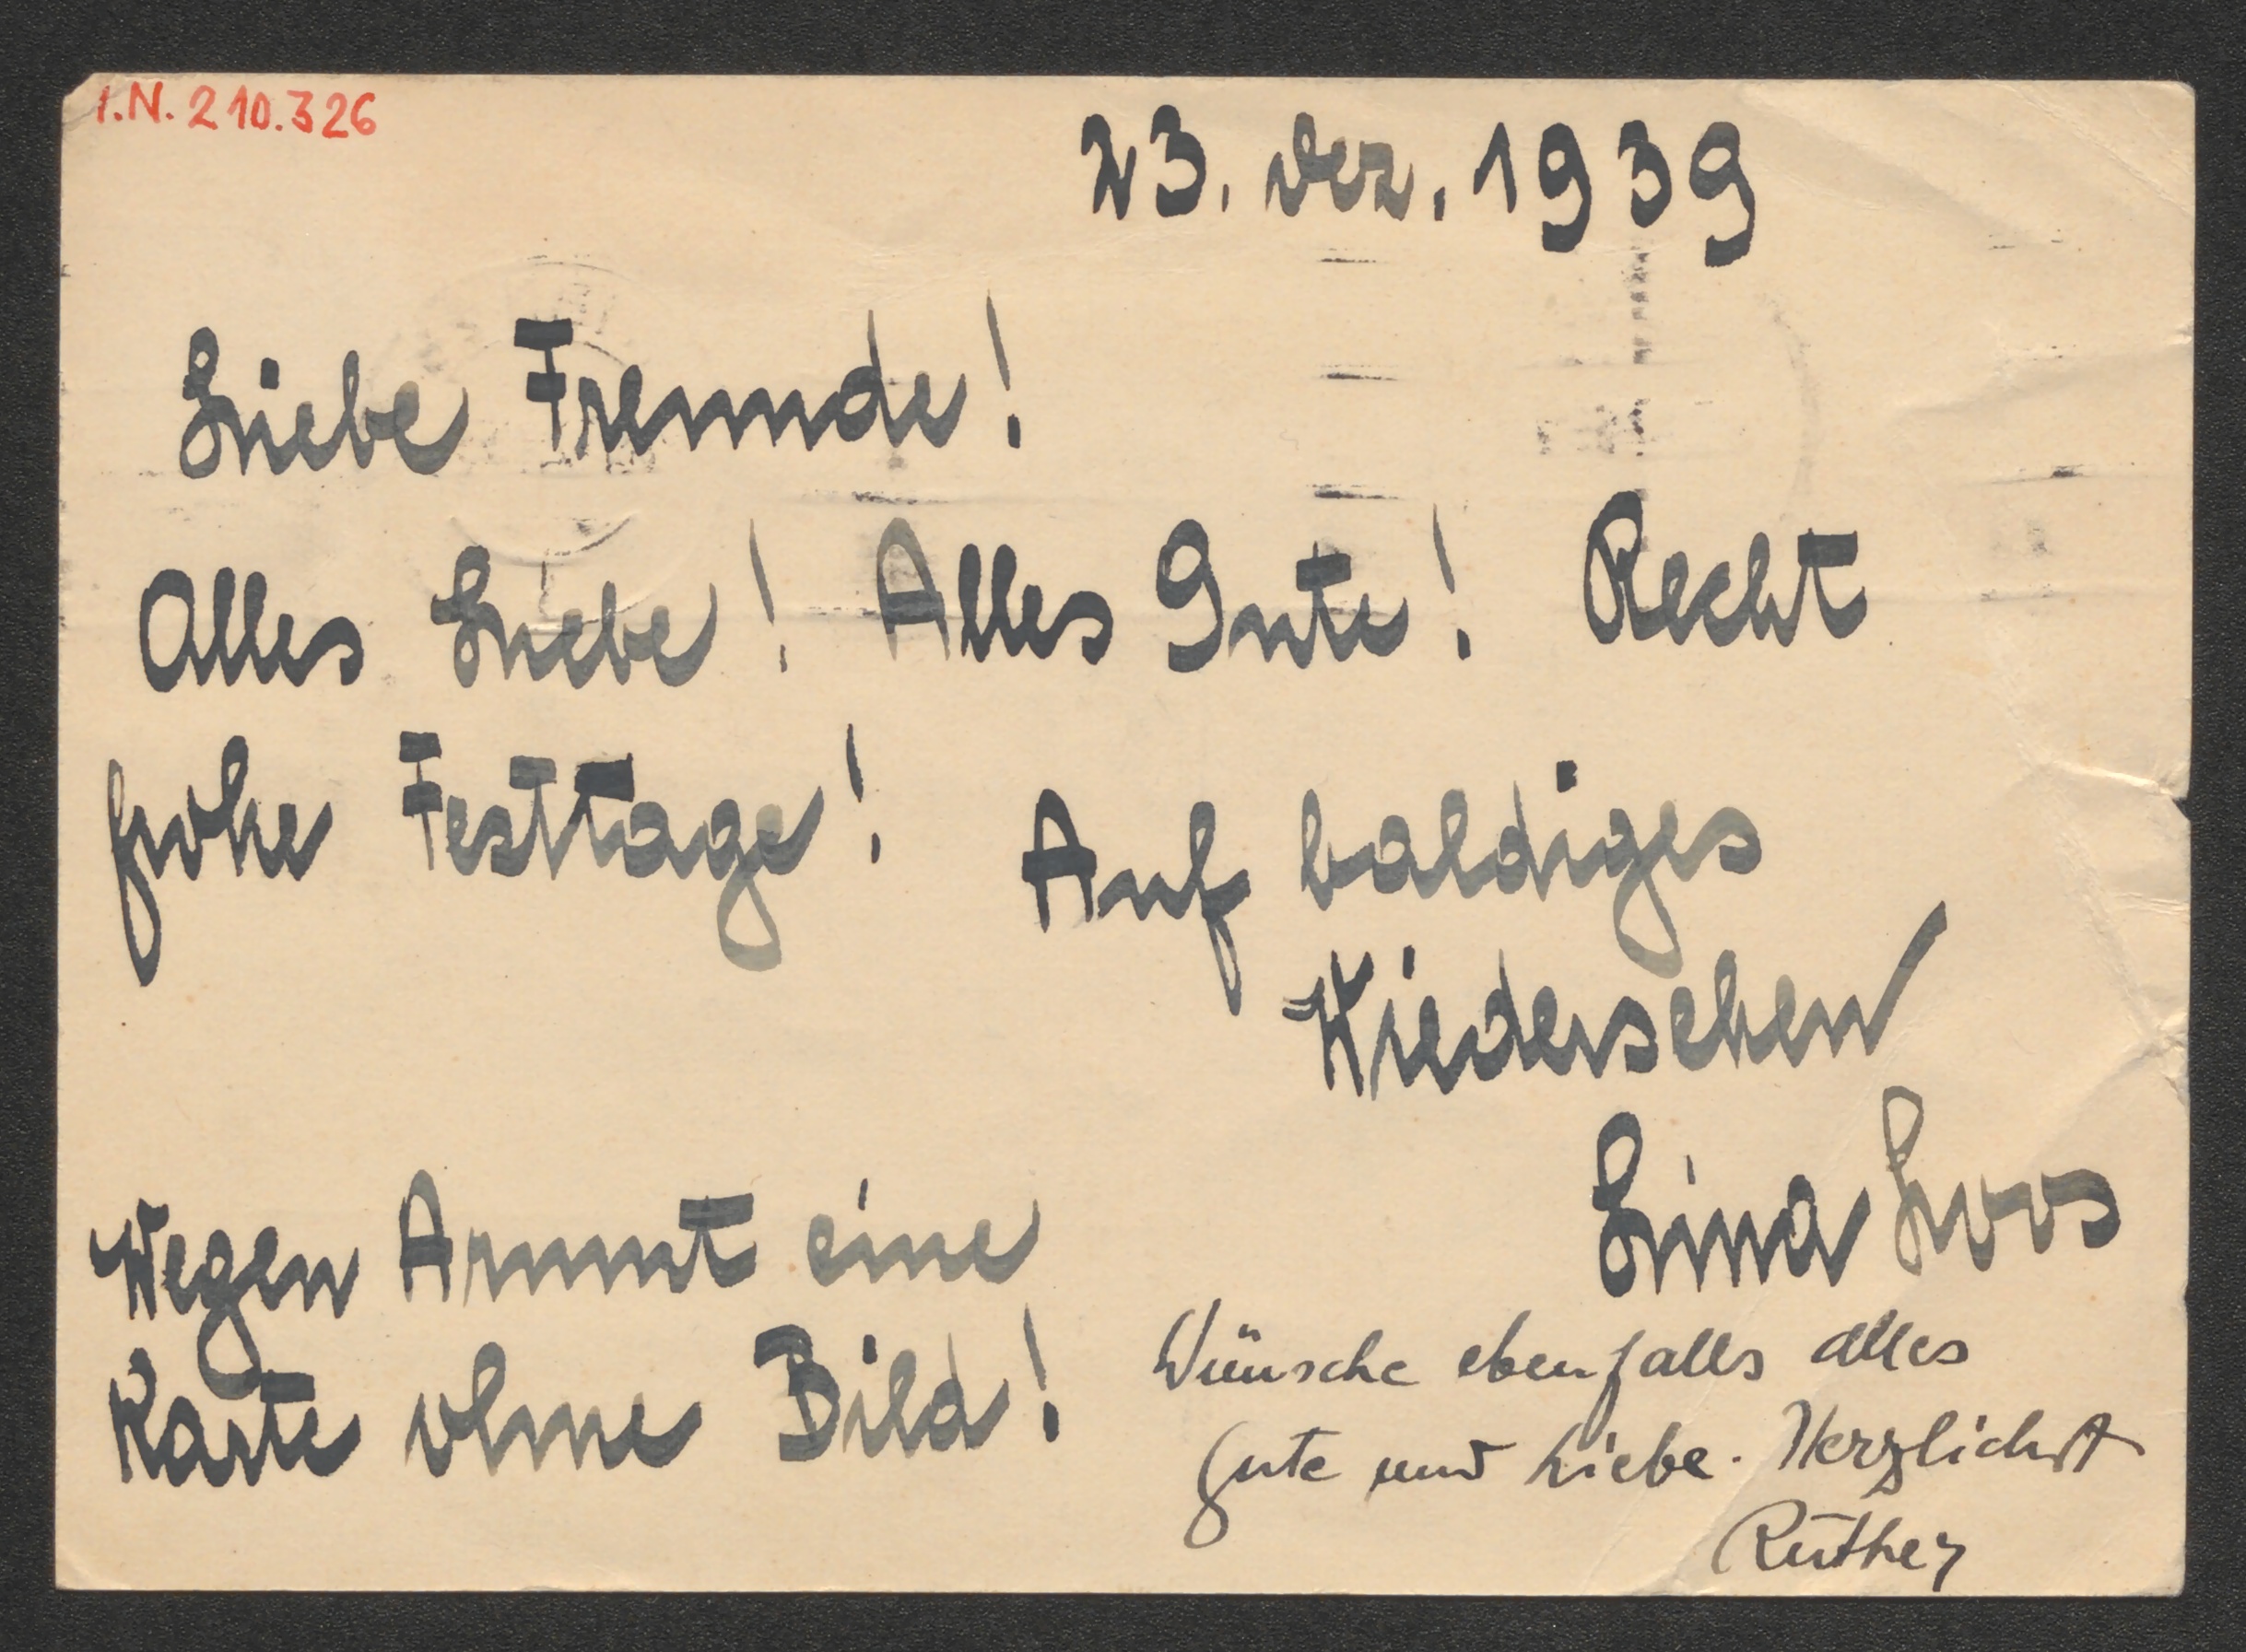 I.N. 210.326
23. dez. 1939
Liebe Freunde!
Alles Liebe! Alles Gute! Recht
frohe Festtage! Auf baldiges
Wiedersehen
Lina Loos
Wegen Armut eine
Karte ohne Bild!
Wünsche ebenfalls alles
Gute und Liebe. Herzlichst
Ruther